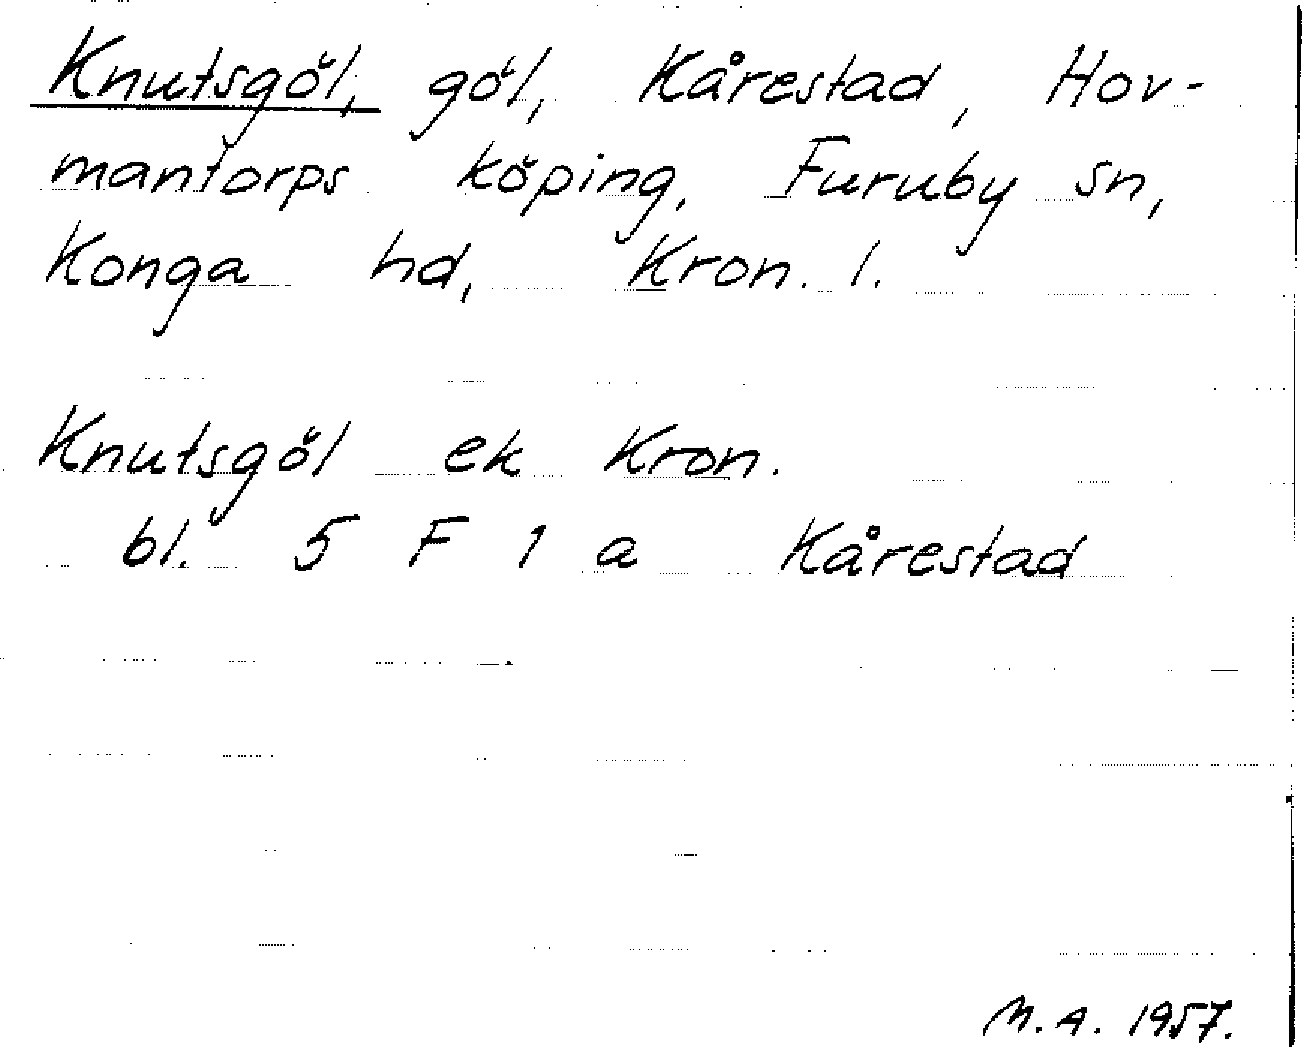 Knutsgöl, göl, Kårestad, Hov-
mantorps köping, Furuby sn,
Konga hd, Kron. l.
Knutsgöl ek Kron.
bl. 5 F 1 a Kårestad
M.A. 1957.